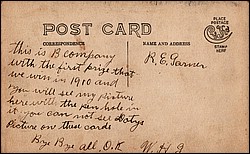 POST CARD
PLACE
POSTAGE
STAMP
HERE
CORRESPONDENCE
NAME AND ADDRESS
This is B company
with the first prize that
we won in 1910 and
you will see my picture
here with the pen hole in
it you can not see
Picture on this cards
Bye Bye all. O.K
R. E. Garner
W. H. G